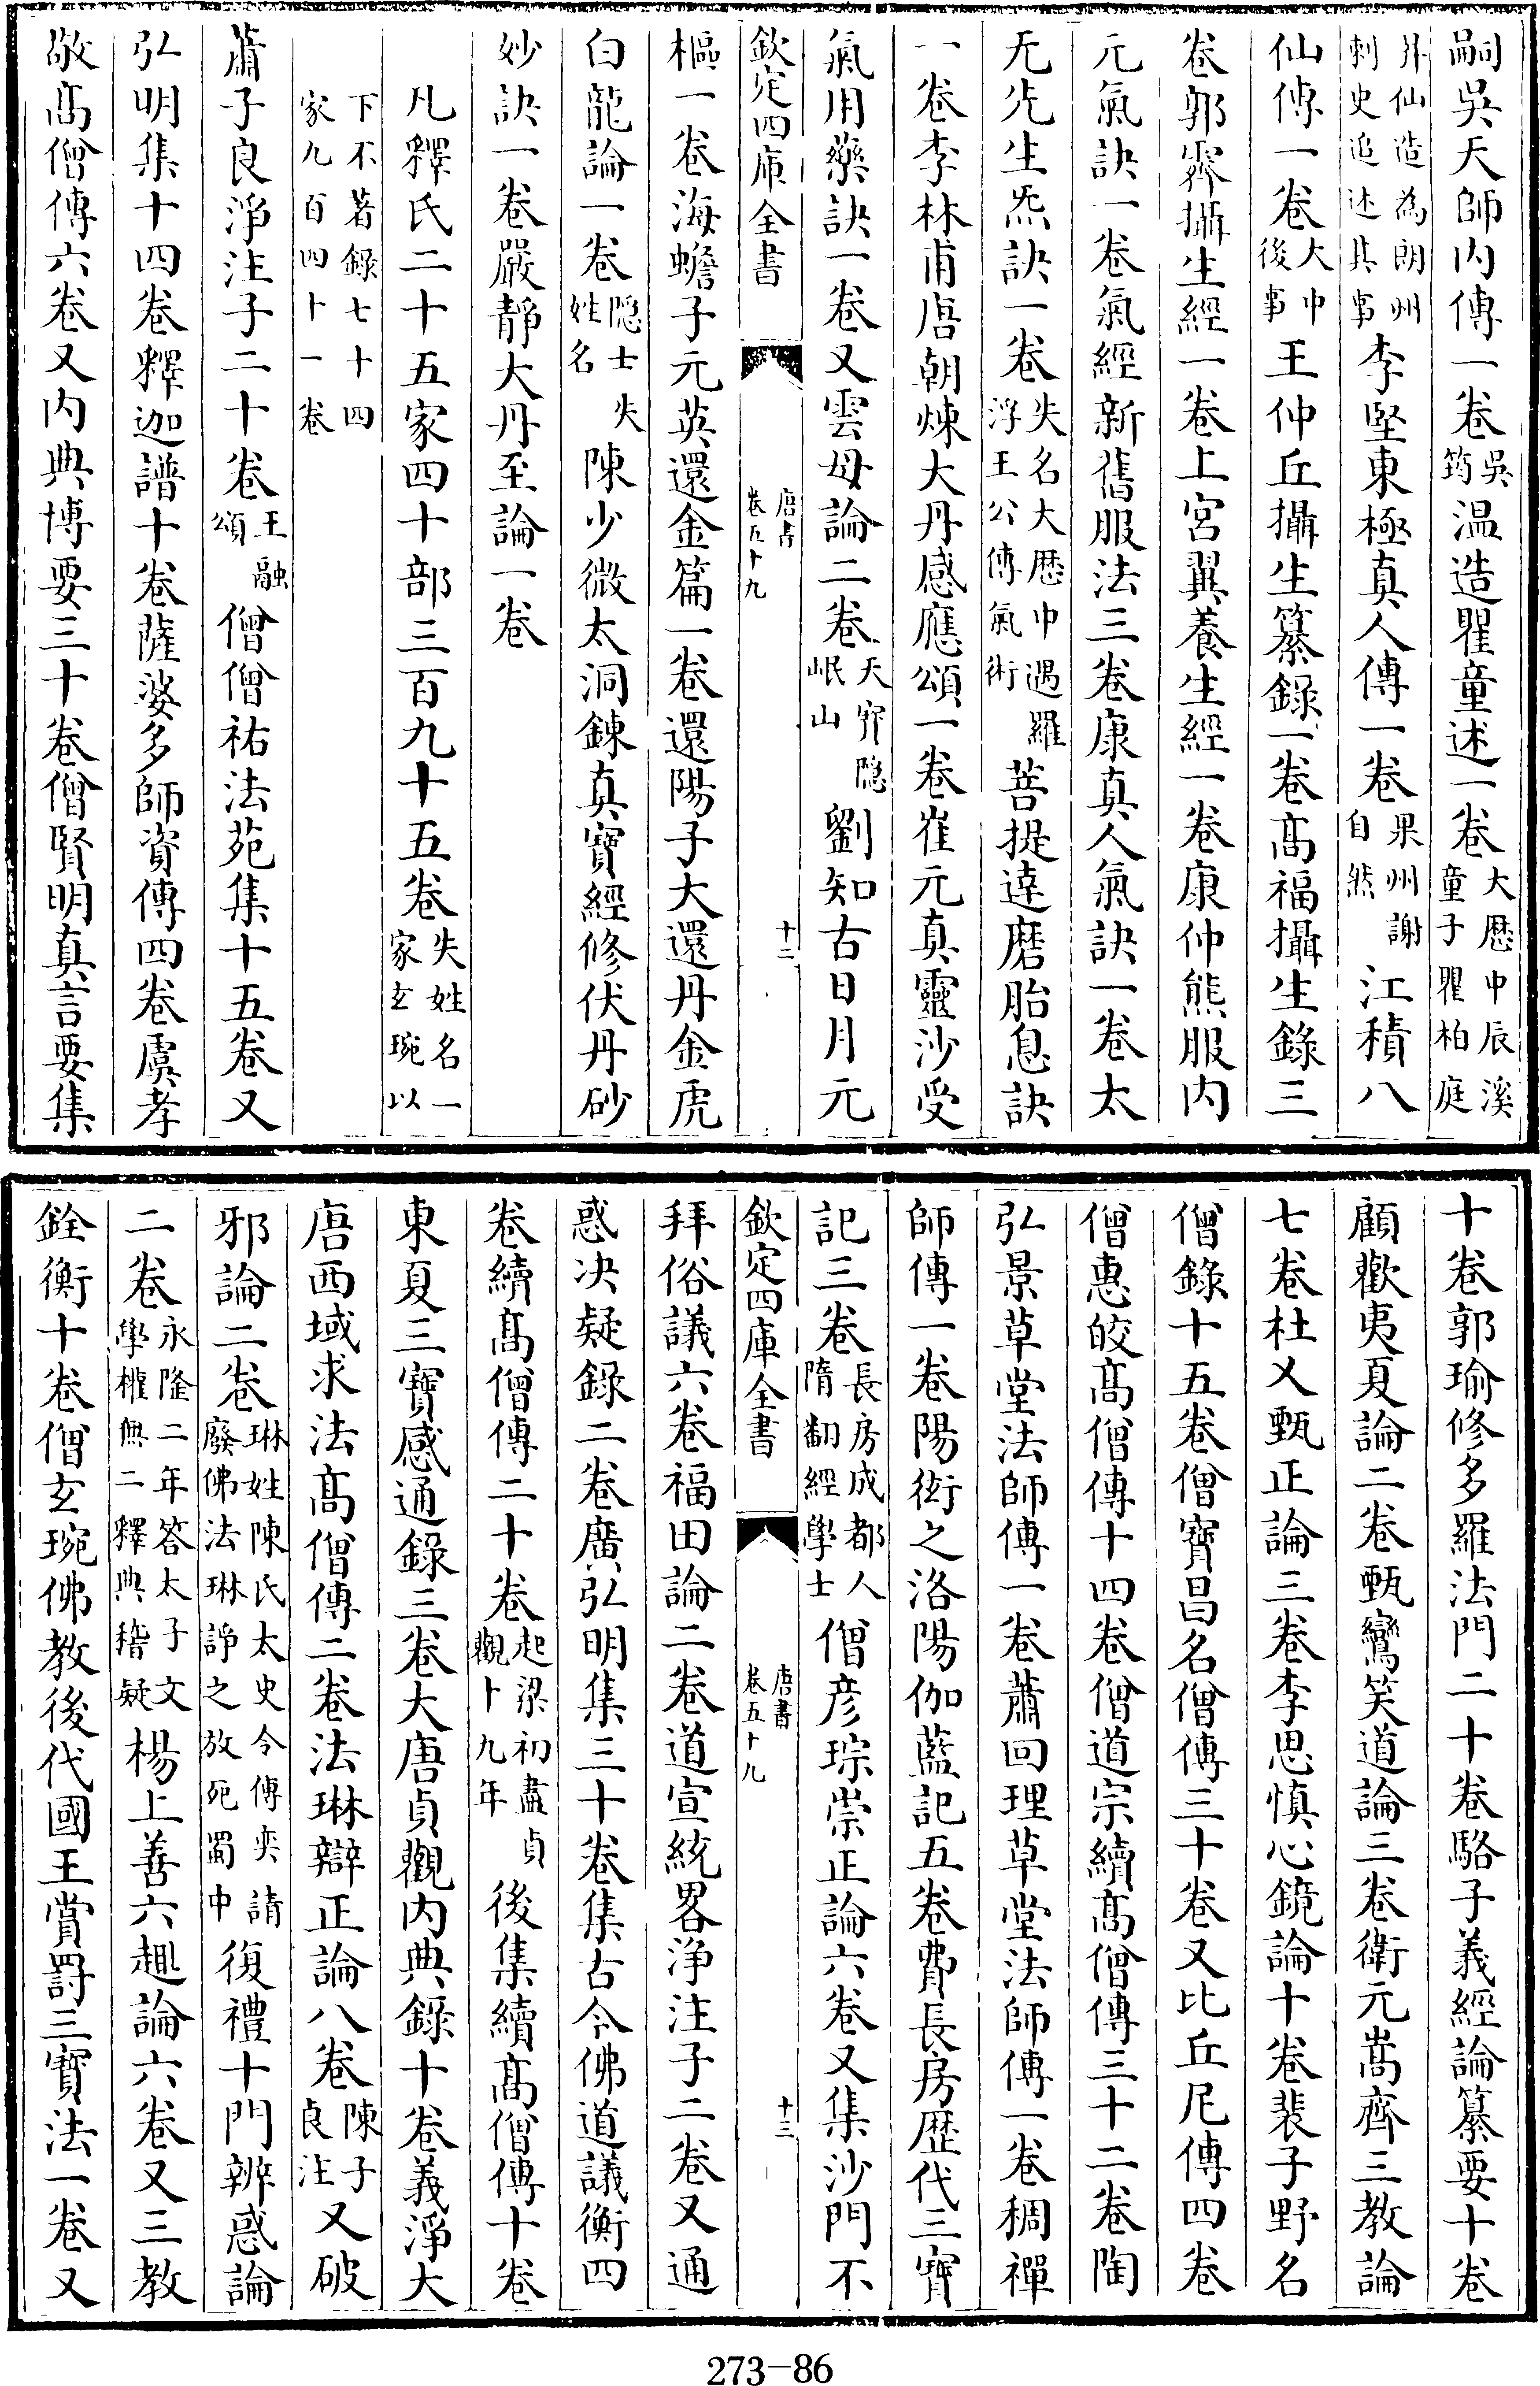 嗣吳天師内傳一卷吳筠温造瞿童述一卷大厯中辰溪童子瞿柏庭
昇仙造為朗州刺史追述其事李堅東極真人傳一卷果州謝自然江積八
仙傳一卷大中後事王仲丘攝生纂錄一卷高福攝生錄三
卷郭霽攝生經一卷上宮翼養生經一卷康仲熊服内
元氣訣一卷氣經新舊服法三卷康真人氣訣一卷太
无先生炁訣一卷失名大厯中遇羅浮王公傳氣術菩提達磨胎息訣
一卷李林甫唐朝煉大丹感應頌一卷崔元真靈沙受
氣用藥訣一卷又雲母論二卷天寳隱岷山劉知古日月元
欽定四庫全書 唐書卷五十九 十二
樞一卷海蟾子元英還金篇一卷還陽子大還丹金虎
白龍論一卷隱士失姓名陳少微太洞鍊真寶經修伏丹砂
妙訣一卷嚴靜大丹至論一卷
凡釋氏二十五家四十部三百九十五卷失姓名一家玄琬以
下不著錄七十四家九百四十一卷
蕭子良淨注子二十卷王融頌僧僧祐法苑集十五卷又
弘明集十四卷釋迦譜十卷薩婆多師資傳四卷虞孝
敬髙僧傳六卷又内典博要三十卷僧賢明真言要集
十卷郭瑜修多羅法門二十卷駱子義經論纂要十卷
顧歡夷夏論二卷甄鸞笑道論三卷衛元嵩齊三教論
七卷杜乂甄正論三卷李思慎心鏡論十卷裴子野名
僧錄十五卷僧寶昌名僧傳三十卷又比丘尼傳四卷
僧惠皎髙僧傳十四卷僧道宗續髙僧傳三十二卷陶
弘景草堂法師傳一卷蕭回理草堂法師傳一卷稠禪
師傳一卷陽衒之洛陽伽藍記五卷費長房歴代三寶
記三卷長房成都人隋翻經學士僧彦琮崇正論六卷又集沙門不
欽定四庫全書 唐書卷五十九 十三
拜俗議六卷福田論二卷道宣統畧浄注子二卷又通
惑决疑録二卷廣弘明集三十卷集古今佛道議衡四
卷續髙僧傳二十卷起梁初盡貞觀十九年後集續髙僧傳十卷
東夏三寶感通錄三卷大唐貞觀内典錄十卷義淨大
唐西域求法髙僧傳二卷法琳辯正論八卷陳子良注又破
邪論二卷琳姓陳氏太史令傅奕請廢佛法琳諍之放死蜀中復禮十門辨惑論
二卷永隆二年答太子文學權無二釋典稽疑楊上善六趣論六卷又三教
銓衡十卷僧玄琬佛教後代國王賞罰三寶法一卷又
273-86